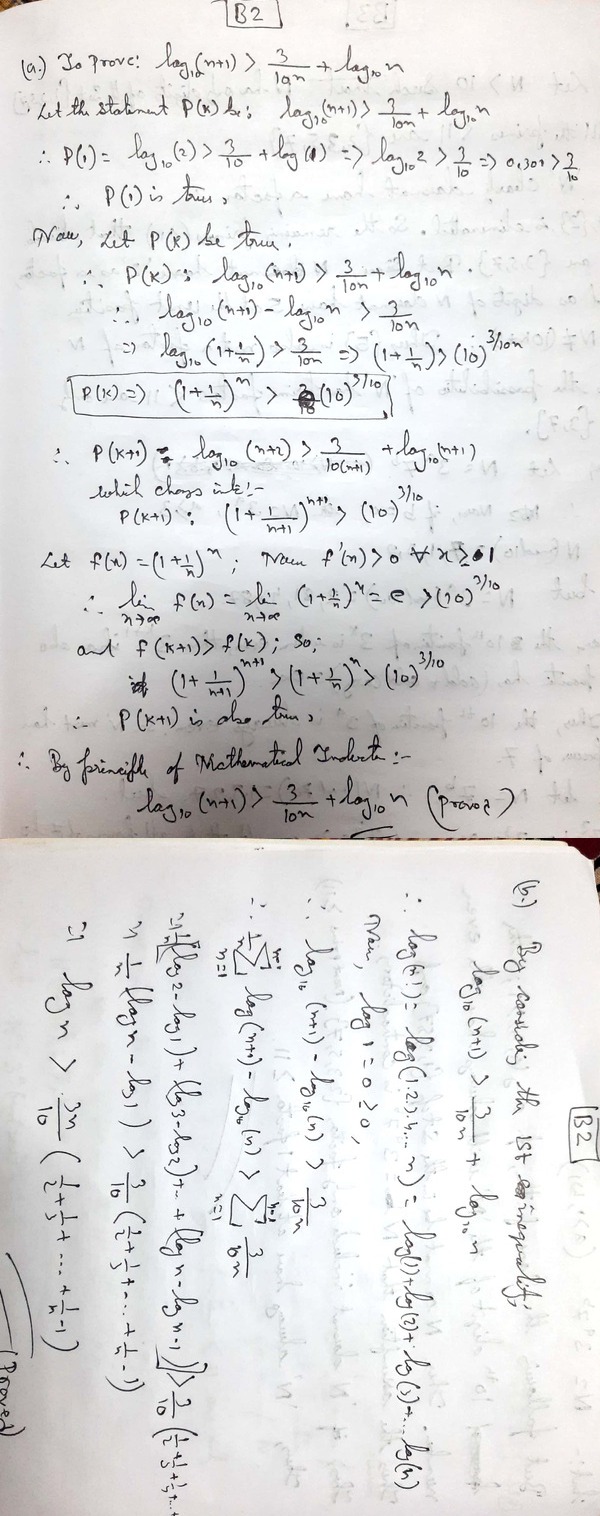 B2
(a.) To prove: log₁₀(n+1) > 3/10n + log₁₀n
Let the statement P(k) be: log₁₀(n+1) > 3/10n + log₁₀n
∴ P(1) = log₁₀(2) > 3/10 + log(1) => log₁₀2 > 3/10 => 0.301 > 3/10
∴ P(1) is true,
Now, Let P(k) be true.
∴ P(k): log₁₀(n+1) > 3/10n + log₁₀n
∴ log₁₀(n+1) - log₁₀n > 3/10n
=> log₁₀(1+1/n) > 3/10n => (1+1/n) > (10)^3/10n
P(k) => (1+1/n)^n > (10)^3/10
∴ P(k+1) = log₁₀(n+2) > 3/10(n+1) + log₁₀(n+1)
which changes into:-
P(k+1): (1+1/n+1)^n+1 > (10)^3/10
Let f(x) = (1+1/n)^n; Now f'(x) > 0 ∀ x ≥ 1
∴ lim n→∞ f(x) = lim n→∞ (1+1/n)^n = e > (10)^3/10
and f(k+1) > f(k); so,
(1+1/n+1)^n+1 > (1+1/n)^n > (10)^3/10
∴ P(k+1) is also true,
∴ By principle of Mathematical :-
log₁₀(n+1) > 3/10n + log₁₀n (proved)
B2
(b.) By the 1st inequality,
log₁₀(n+1) > 3/10n + log₁₀n
∴ log(n!) = log(1.2.3.4... n) = log(1)+log(2)+log(3)+...log(n)
Now, log 1 = 0 ≥ 0,
∴ log₁₀(n+1) - log₁₀(n) > 3/10n
log(n+1) - log₁₀(n) > 3/10n
(log2-log1)+(log3-log2)+...+(logn-logn-1) > 3/10 (
=> 1/n (logn - log1) > 3/10 (1/2+1/3+...+1/n-1)
=> logn > 3n/10 (1/2+1/3+...+1/n-1)
(Proved)